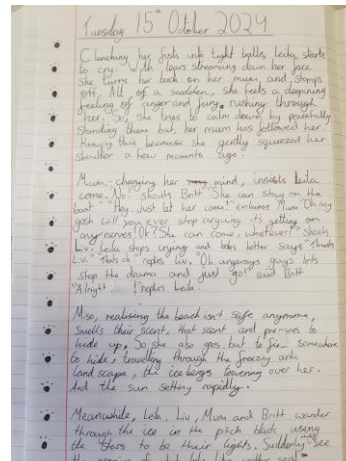 Tuesday 15th October 2024
Clenching her fists into tight balls, Leila starts
to cry. With tears streaming down her face
She turns her back on her mum, and stomps
off. All of a sudden, she feels a deepning
feeling of anger and fury rushing through
her. So, she tries to calm down by peacefully
standing there but, her mum has followed her.
Knowing this because she gently squeezed her
shoulder a few moments ago.
Mum, changing her mind, insists Leila
come. "No." Shouts Britt "She can stay on the
boat" "Hey. Just let her come!" exclaims Mum "Oh my
gosh will you ever stop arguing it's getting on
my nerves! Ok? She can come, whatever!" Shouts
Liv. Leila stops crying and looks better says "Thanks
Liv." "Thats ok" replies Liv. "Ok anyways guys lets
stop the drama and just go!" said Britt
"Alright !" replies Leila.
Miso, realising the beach isn't safe anymore,
smells their scent, that scent and
hide up. So she also goes, but to somewhere
to hide, travelling through the freezing
landscape, the icebergs towering over her.
And the sun setting rapidly.
Meanwhile, Leila, Liv, Mum and Britt wander
through the ice in the pitch black using
the stars to be their lights. Suddenly see